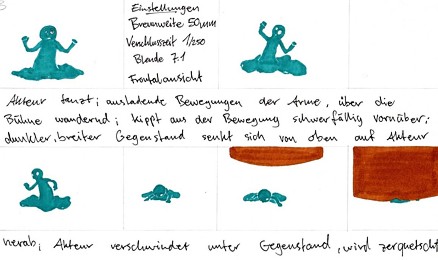 Einstellungen
Brennweite 50mm
Verschlusszeit 1/250
Blende 7.1
Frontalansicht
Akteur tanzt; ausladende Bewegungen der Arme, über die
Bühne wandernd; kippt aus der Bewegung schwerfällig vornüber;
dunkler, breiter Gegenstand senkt sich von oben auf Akteur
herab; Akteur verschwindet unter Gegenstand, wird zerquetscht